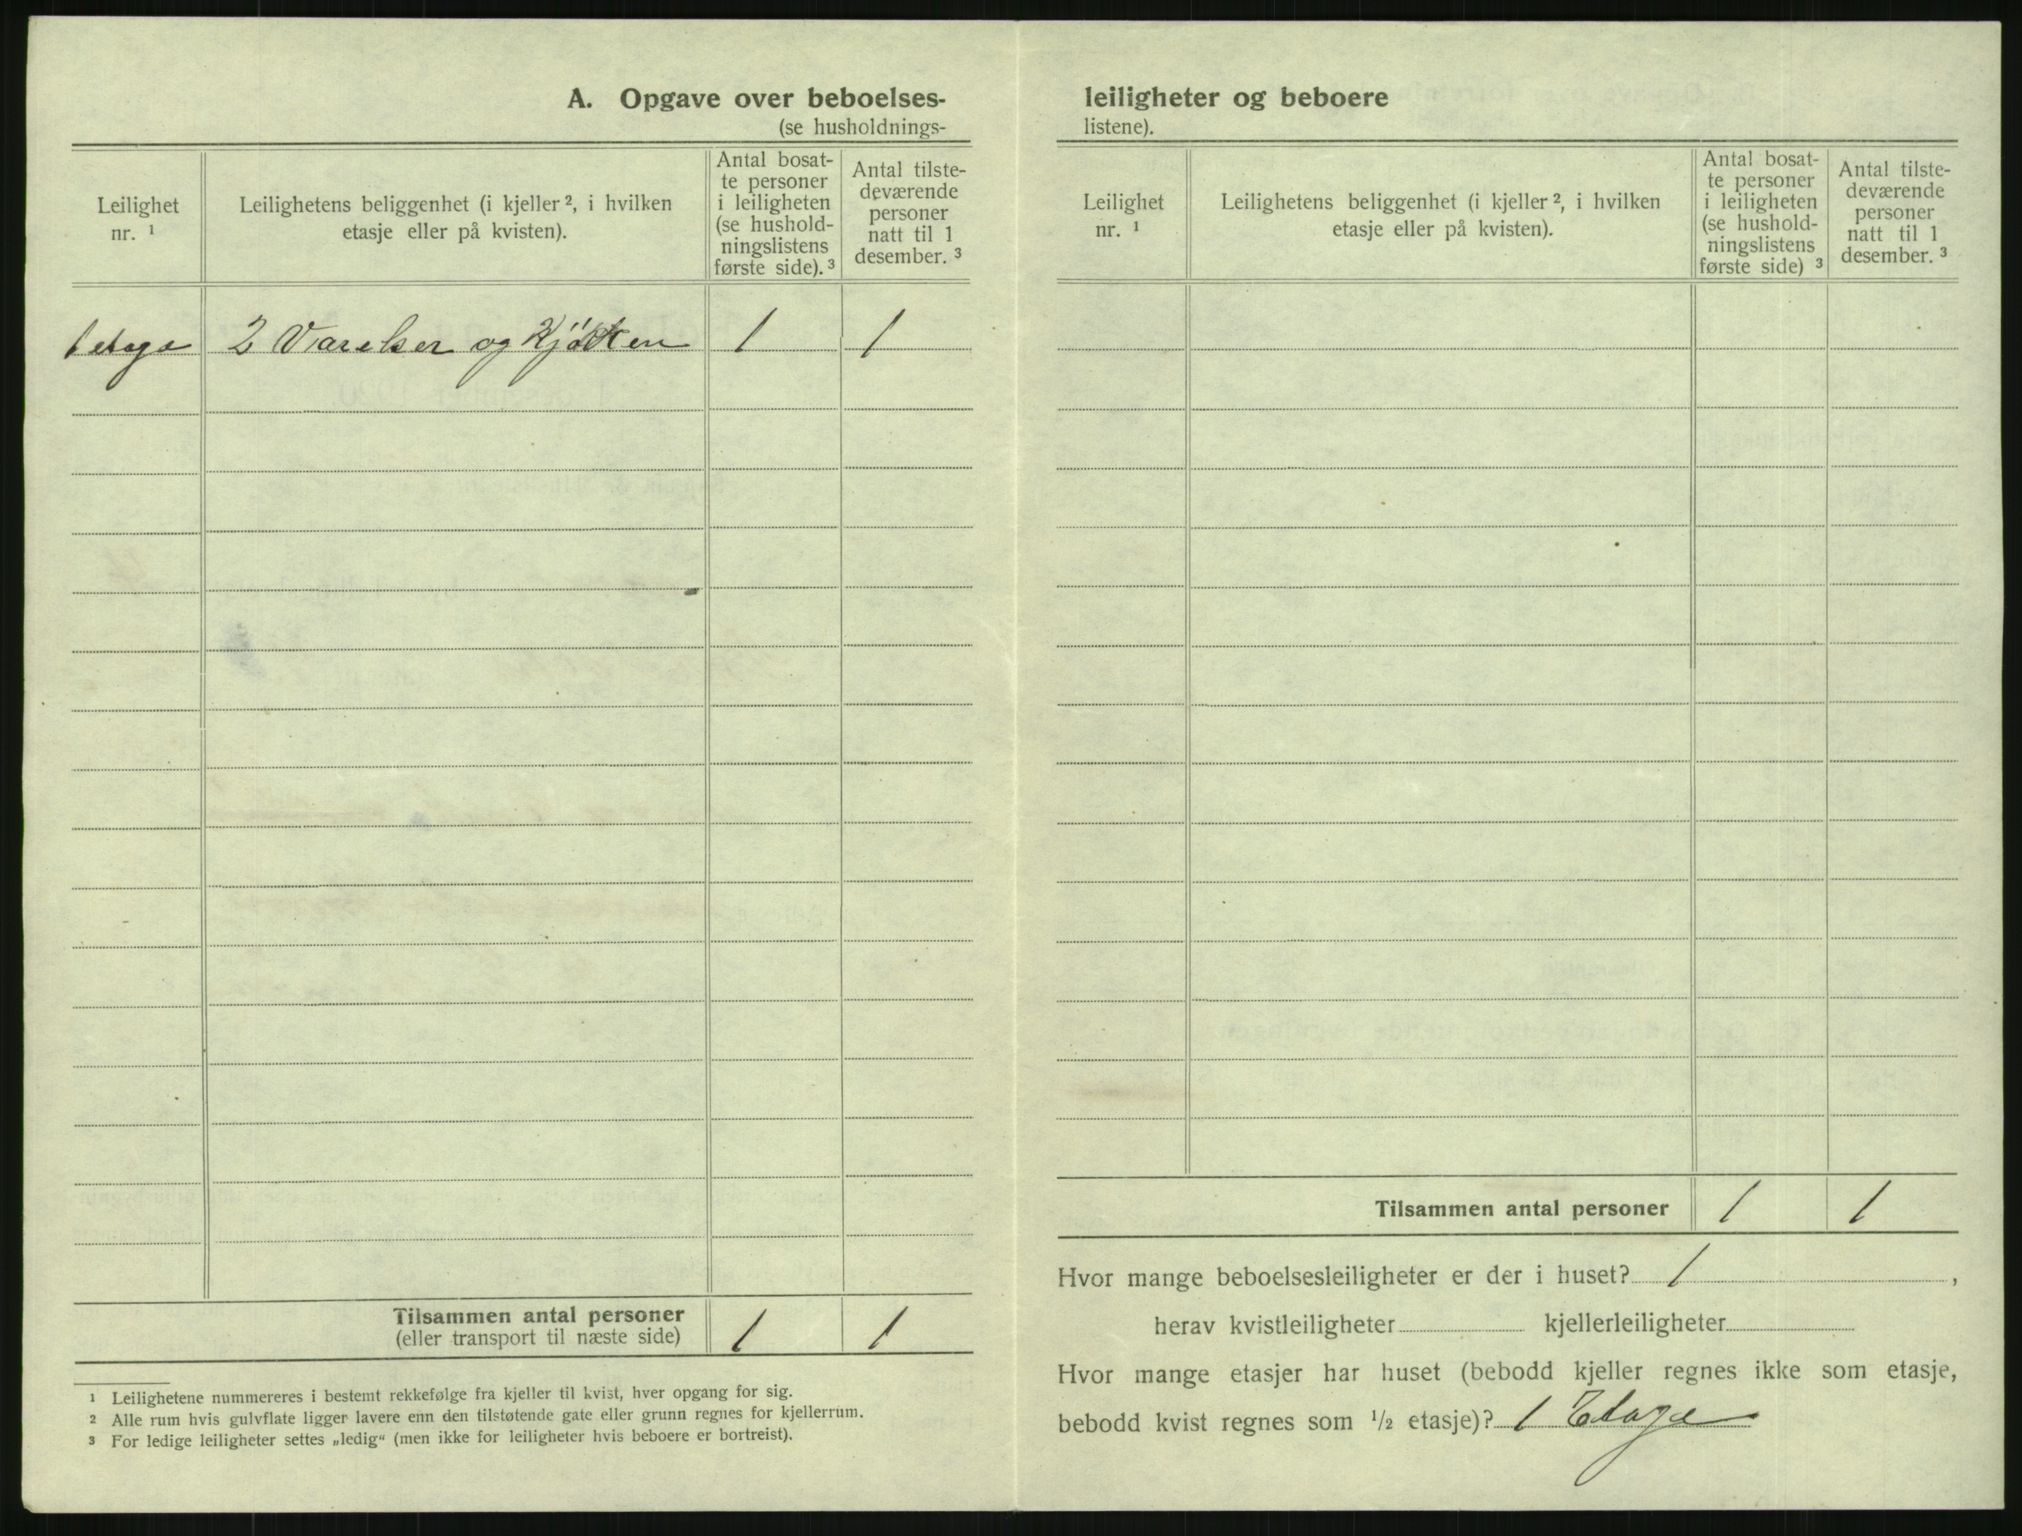 A. Opgave over beboelses-
(se husholdnings-
Leilighet nr. ¹
Leilighetens beliggenhet (i kjeller ², i hvilken
etasje eller på kvisten).
Antal bosat-
te personer
i leiligheten
(se hushold-
ningslistens
første side). ³
Antal tilste-
deværende
personer
natt til 1
desember. ³
1 etage 2 Værelser og Kjøkken 1 1
Tilsammen antal personer 1 1
(eller transport til næste side)
¹ Leilighetene nummereres i bestemt rekkefølge fra kjeller til kvist, hver opgang for sig.
² Alle rum hvis gulvflate ligger lavere enn den tilstøtende gate eller grunn regnes for kjellerrum.
³ For ledige leiligheter settes „ledig“ (men ikke for leiligheter hvis beboere er bortreist).
leiligheter og beboere
listene).
Leilighet nr. ¹
Leilighetens beliggenhet (i kjeller ², i hvilken
etasje eller på kvisten).
Antal bosat-
te personer
i leiligheten
(se hushold-
ningslistens
første side) ³
Antal tilste-
deværende
personer
natt til 1
desember. ³
Tilsammen antal personer 1 1
Hvor mange beboelsesleiligheter er der i huset? 1 ,
herav kvistleiligheter kjellerleiligheter
Hvor mange etasjer har huset (bebodd kjeller regnes ikke som etasje,
bebodd kvist regnes som ½ etasje)? 1 Etage